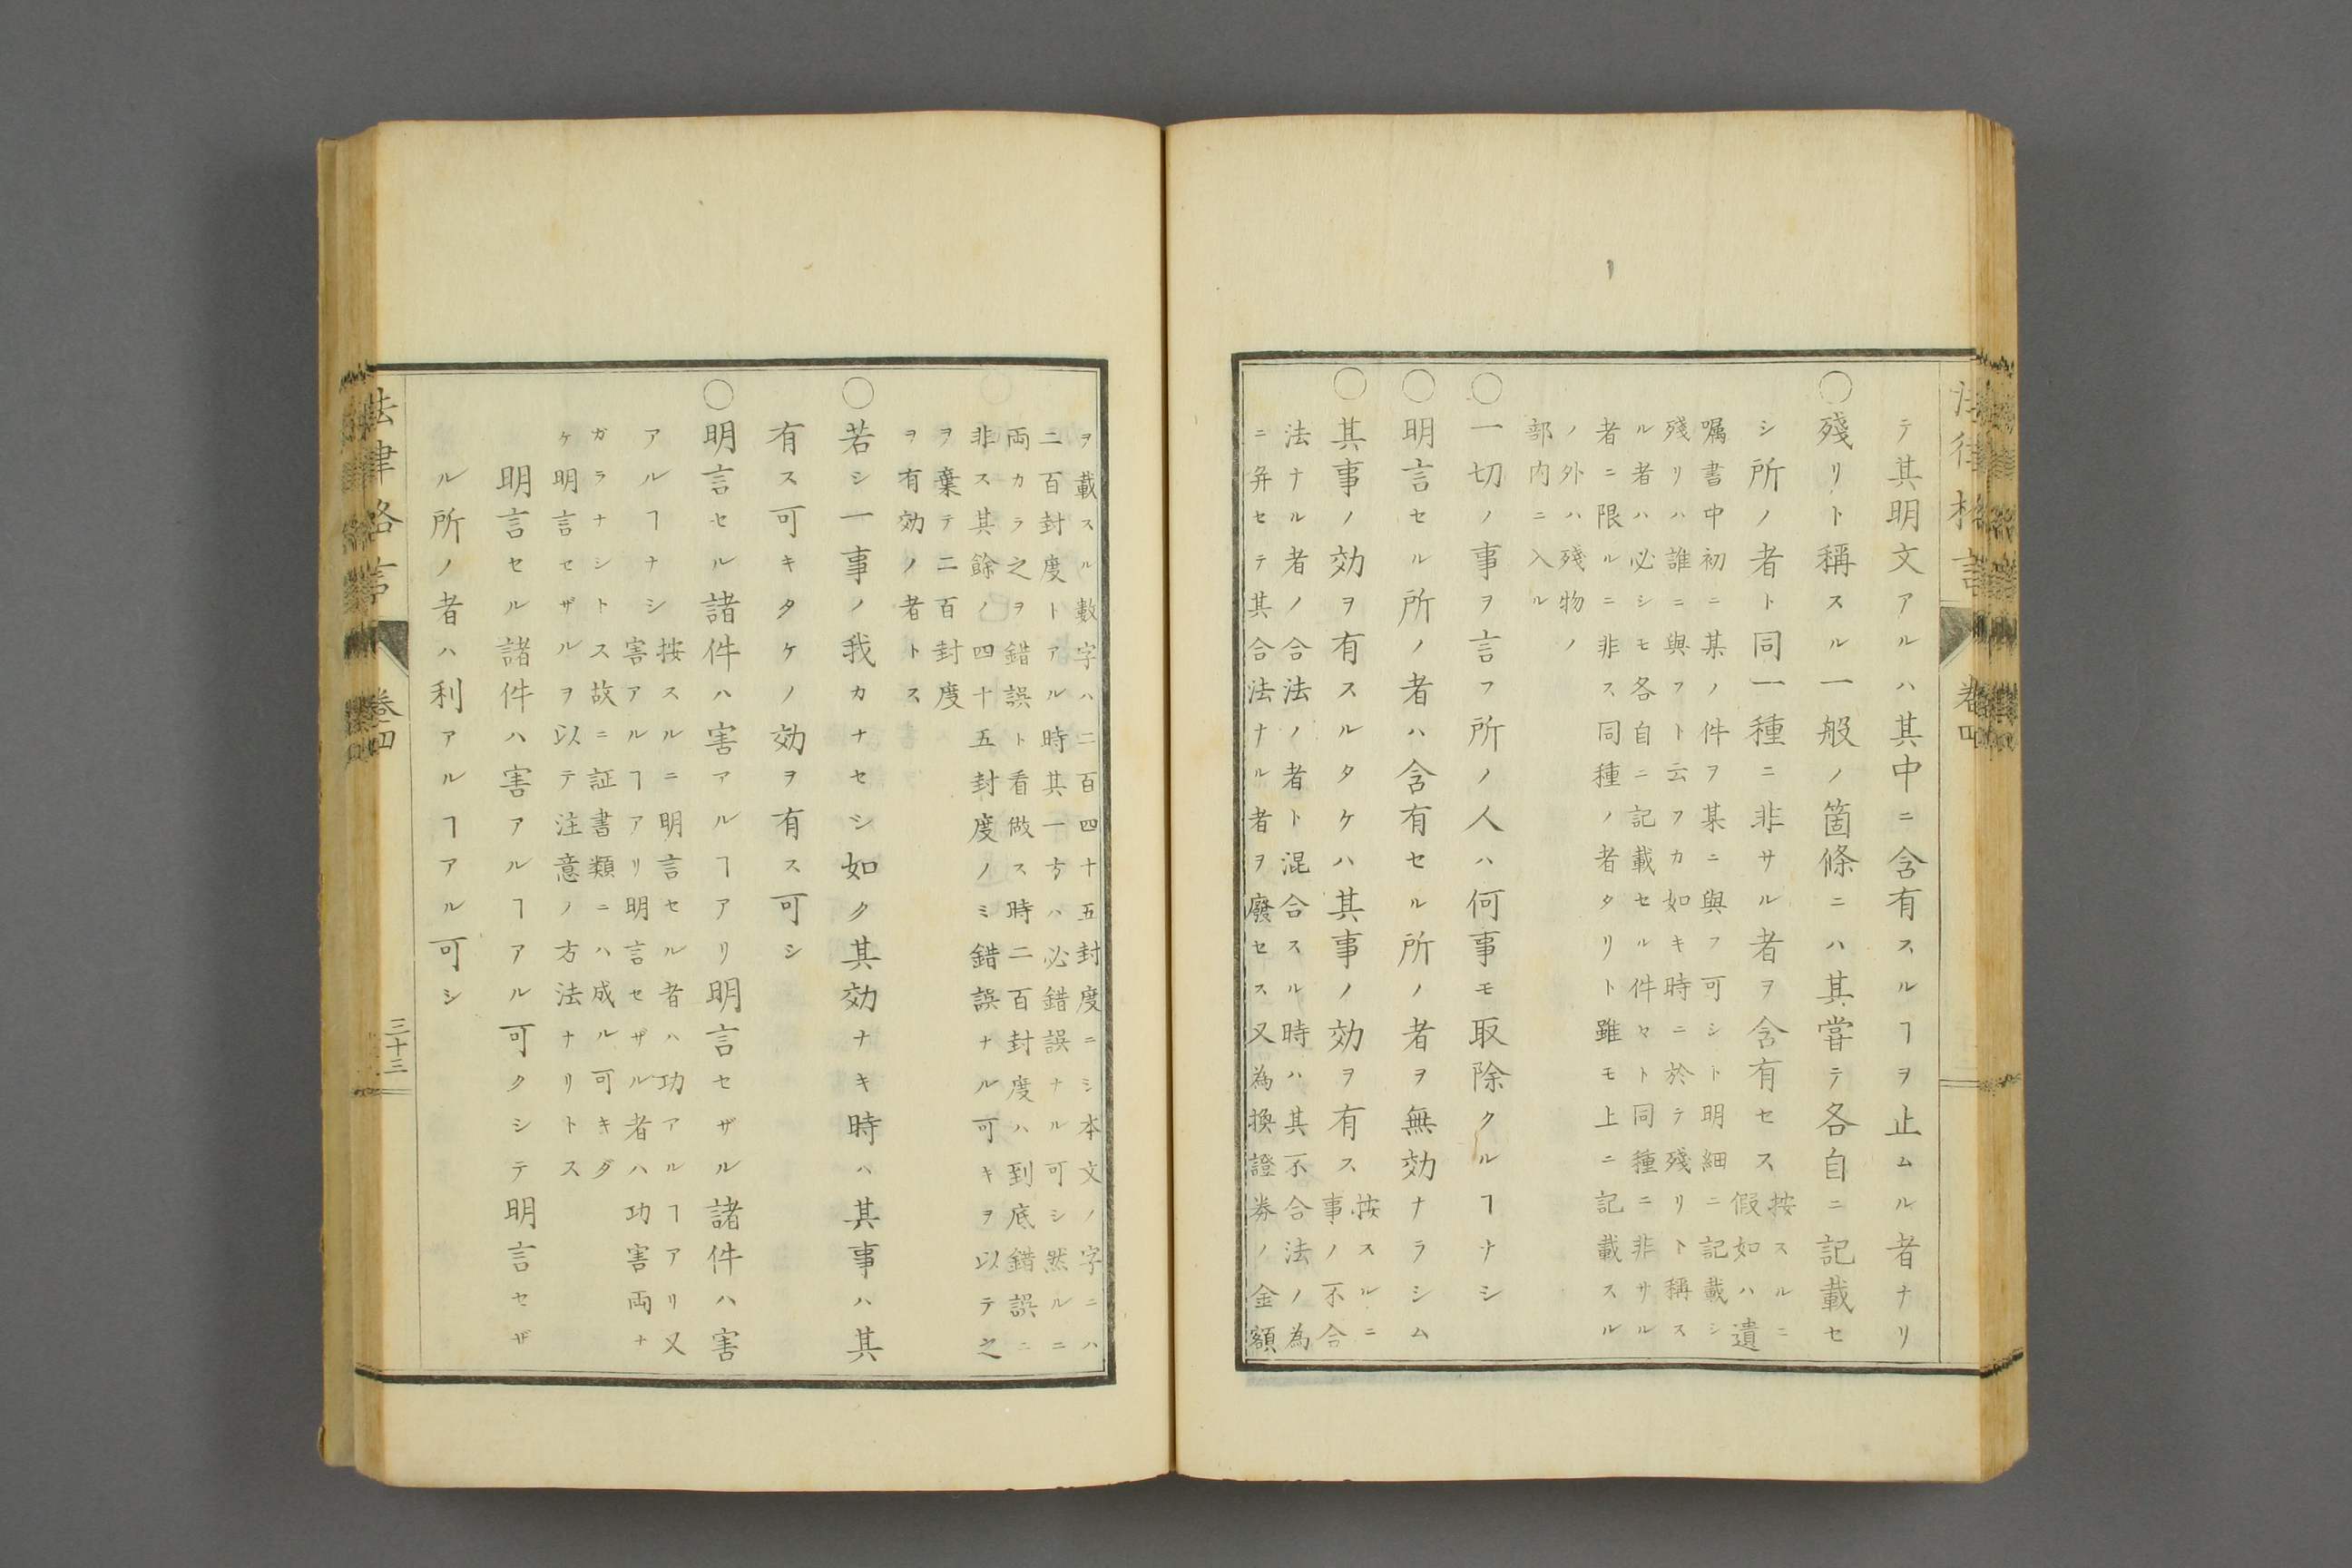 テ其明文アルハ其中ニ含有スルヿヲ止ムル者ナリ
○殘リト稱スル一般ノ箇條ニハ其甞テ各自ニ記載セ
シ所ノ者ト同一種ニ非サル者ヲ含有セス
按スルニ
假如ハ遺
嘱書中初ニ某ノ件ヲ某ニ與フ可シト明細ニ記載シ
殘リハ誰ニ與フト云フカ如キ時ニ於テ殘リト稱ス
ル者ハ必シモ各自ニ記載セル件々ト同種ニ非サル
者ニ限ルニ非ス同種ノ者タリト雖モ上ニ記載スル
ノ外ハ殘物ノ
部内ニ入ル
○一切ノ事ヲ言フ所ノ人ハ何事モ取除クルヿナシ
○明言セル所ノ者ハ含有セル所ノ者ヲ無効ナラシム
○其事ノ効ヲ有スルタケハ其事ノ効ヲ有ス
按スルニ
事ノ不合
法ナル者ノ合法ノ者ト混合スル時ハ其不合法ノ為
ニ并セテ其合法ナル者ヲ廢セス又為換證券ノ金額
法律格言
巻四
ヲ載スル數字ハ二百四十五封度ニシ本文ノ字ニハ
二百封度トアル時其一方ハ必錯誤ナル可シ然ルニ
両カラ之ヲ錯誤ト看做ス時二百封度ハ到底錯誤ニ
非ス其餘ノ四十五封度ノミ錯誤ナル可キヲ以テ之
ヲ棄テ二百封度
ヲ有効ノ者トス
○若シ一事ノ我カナセシ如ク其効ナキ時ハ其事ハ其
有ス可キタケノ効ヲ有ス可シ
○明言セル諸件ハ害アルヿアリ明言セザル諸件ハ害
アルヿナシ
按スルニ明言セル者ハ功アルヿアリ又
害アルヿアリ明言セザル者ハ功害両ナ
ガラナシトス故ニ証書類ニハ成ル可キダ
ケ明言セザルヲ以テ注意ノ方法ナリトス
明言セル諸件ハ害アルヿアル可クシテ明言セザ
ル所ノ者ハ利アルヿアル可シ
法律格言
巻四
三十三